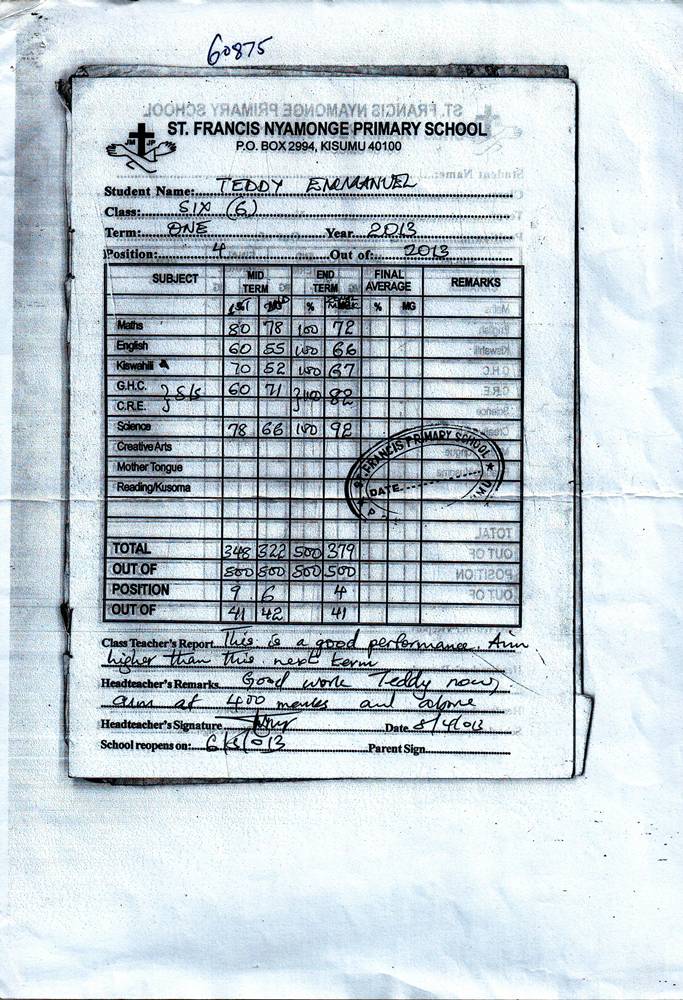 60875
ST. FRANCIS NYAMONGE PRIMARY SCHOOL
JM JP
P.O. BOX 2994, KISUMU 40100
Student Name: TEDDY EMMANUEL
Class: SIX (6)
Term: ONE Year 2013
Position: 4 Out of: 2013
SUBJECT MID TERM END TERM FINAL AVERAGE REMARKS
1ST 2ND % % MG
Maths 80 78 100 72
English 60 55 100 66
Kiswahili 70 52 100 67
G.H.C. } S/S 60 71 } 100 82
C.R.E.
Science 78 66 100 92
Creative Arts
Mother Tongue
Reading/Kusoma
ST. FRANCIS PRIMARY SCHOOL
DATE
TOTAL 348 322 500 379
OUT OF 500 500 500 500
POSITION 9 6 4
OUT OF 41 42 41
Class Teacher's Report This is a good performance. Aim
higher than this next term
Headteacher's Remarks Good work Teddy now,
aim at 400 marks and above
Headteacher's Signature Date 8/4/013
School reopens on: 6/5/013 Parent Sign